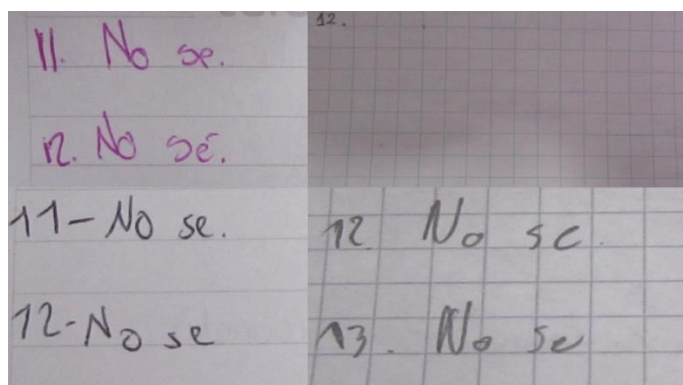 11. No se.
12. No sé.
12.
11- No se.
12- No se
12 No se.
13. No se